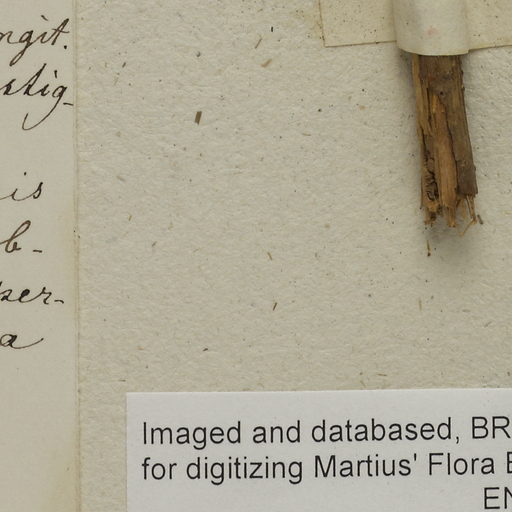 ngit.
stig-
is
b-
per-
a
Imaged and databased, BR
for digitizing Martius' Flora B
EN